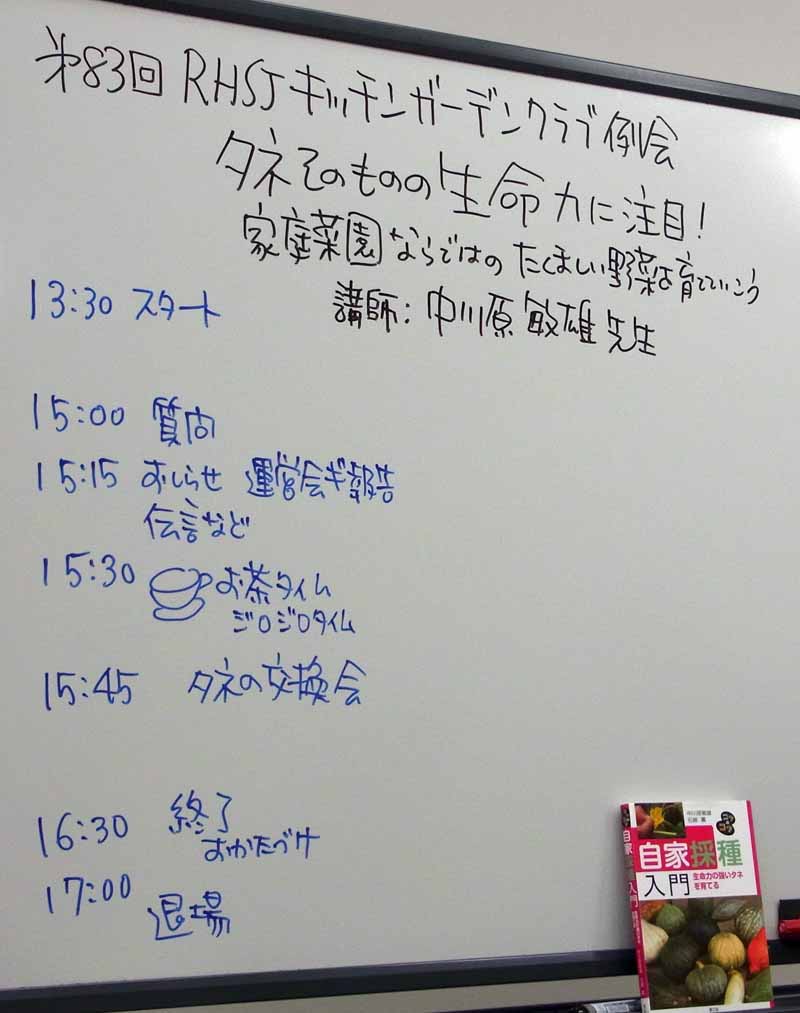 第83回 RHSJ キッチンガーデンクラブ例会
タネそのものの生命力に注目!
家庭菜園ならではの たくましい野菜を育てていこう
講師: 中川原敏雄先生
13:30 スタート
15:00 質問
15:15 おしらせ 運営会ギ報告
伝言など
15:30 お茶タイム
ジロジロタイム
15:45 タネの交換会
16:30 終了
おかたづけ
17:00 退場
中川原敏雄
石綿 薫
コツのコツ
自家採種
入門
生命力の強いタネ
を育てる
自家
入門